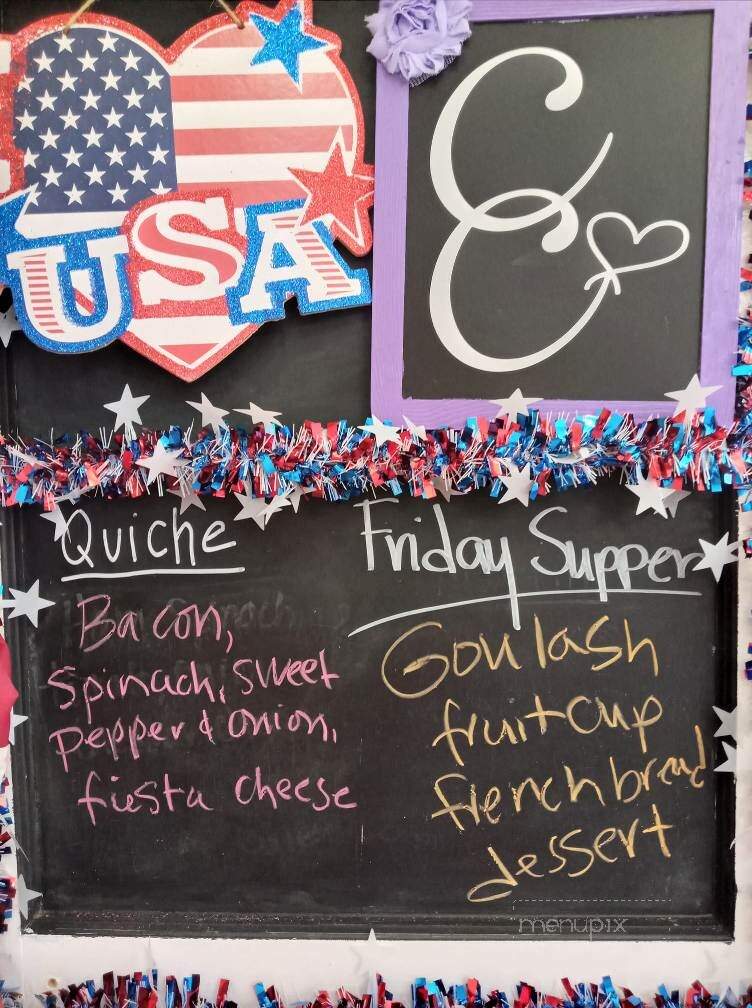 USA
E
Quiche
Bacon,
Spinach, sweet
pepper & onion,
fiesta cheese
Friday Supper
Goulash
fruit cup
french bread
dessert
menupix